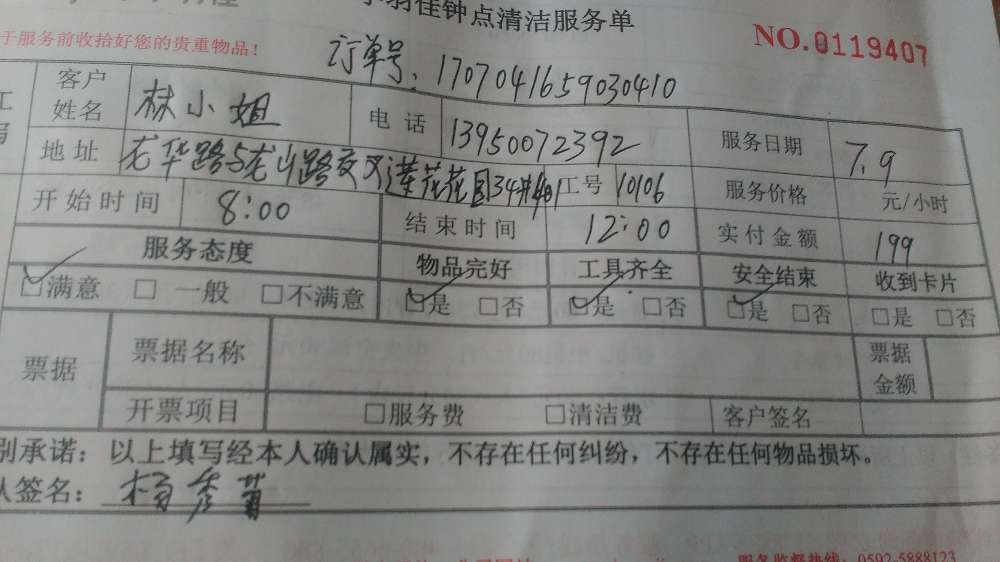 佳钟点清洁服务单
于服务前收拾好您的贵重物品！
NO.0119407
订单号：1707041659030410
客户姓名 林小姐 电话 13950072392 服务日期 7.9
地址 龙华路与龙山路交叉莲花花园34#401 工号 10106 服务价格 元/小时
开始时间 8:00 结束时间 12:00 实付金额 199
服务态度 物品完好 工具齐全 安全结束 收到卡片
☑满意 □一般 □不满意 ☑是 □否 ☑是 □否 ☑是 □否 □是 □否
票据 票据名称 票据金额
开票项目 □服务费 □清洁费 客户签名
别承诺：以上填写经本人确认属实，不存在任何纠纷，不存在任何物品损坏。
人签名：杨秀菁
服务监督热线：0592-5888123